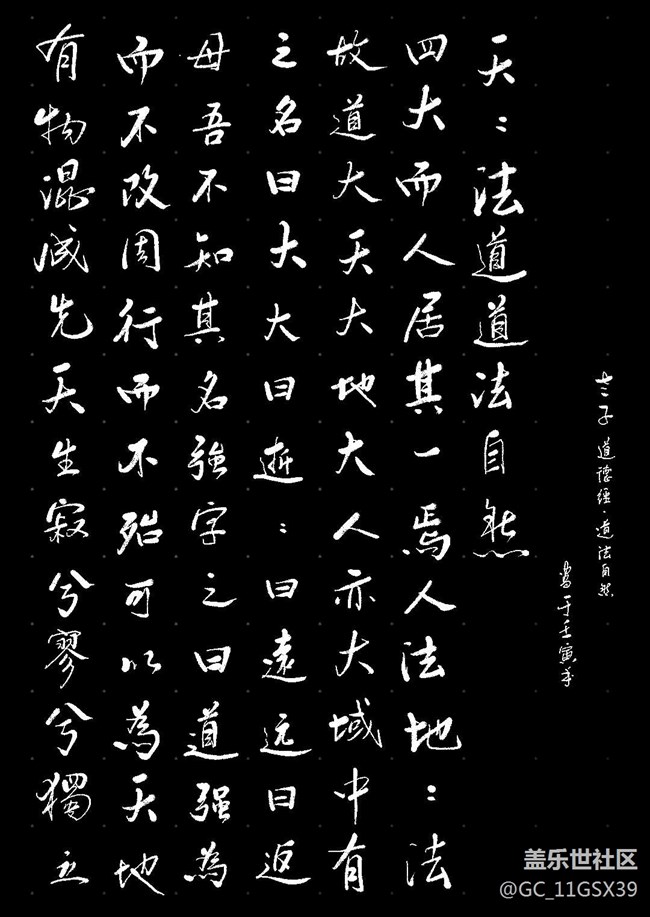 有物混成先天生寂兮寥兮獨立
而不改周行而不殆可以為天地
母吾不知其名強字之曰道强為
之名曰大大曰逝：曰遠远曰返
故道大天大地大人亦大域中有
四大而人居其一焉人法地：法
天：法道道法自然
老子 道德經·道法自然
書于壬寅年
盖乐世社区
@GC_11GSX39